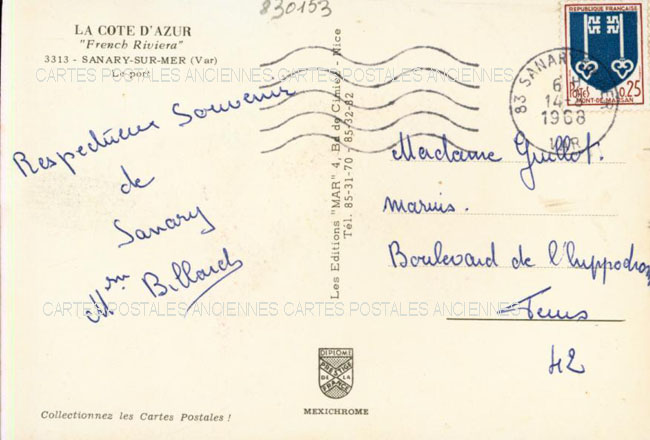 830153
LA COTE D'AZUR
"French Riviera"
3313 - SANARY-SUR-MER (Var)
Le port
CARTES POSTALES ANCIENNES CARTES POSTALES ANCIENNES
Respectueux Souvenir
de
Sanary
Mme Billard
Les Editions "MAR" 4, Bd de Cimiez - Nice
Tél. 85-31-70 - 85-32-82
REPUBLIQUE FRANÇAISE
POSTES 0,25
MONT-DE-MARSAN
83 SANARY
1968
VAR
Madame Guillot.
Marius.
Boulevard de l'hippodrome
Feurs
42
CARTES POSTALES ANCIENNES CARTES POSTALES ANCIENNES
DIPLOME
PRESTIGE
DE LA
FRANCE
MEXICHROME
Collectionnez les Cartes Postales !